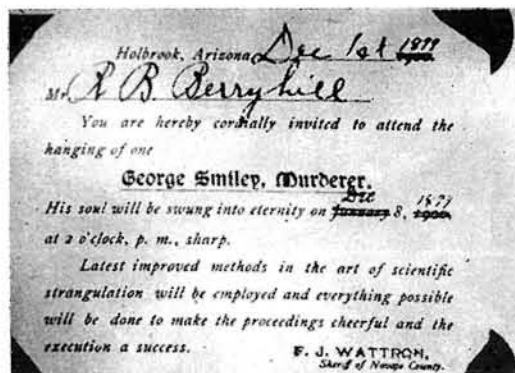 Holbrook, Arizona, Dec 1st 1899 1900
Mr. R B Berryhill
You are hereby cordially invited to attend the
hanging of one
George Smiley, Murderer.
His soul will be swung into eternity on January Dec 8, 1900 1899
at 2 o'clock, p. m., sharp.
Latest improved methods in the art of scientific
strangulation will be employed and everything possible
will be done to make the proceedings cheerful and the
execution a success.
F. J. WATTRON,
Sheriff of Navajo County.